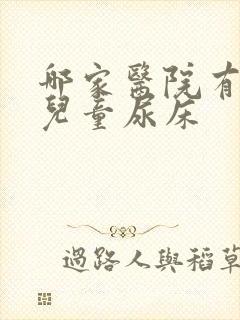 哪家醫院有
兒童尿床
過路人與稻草